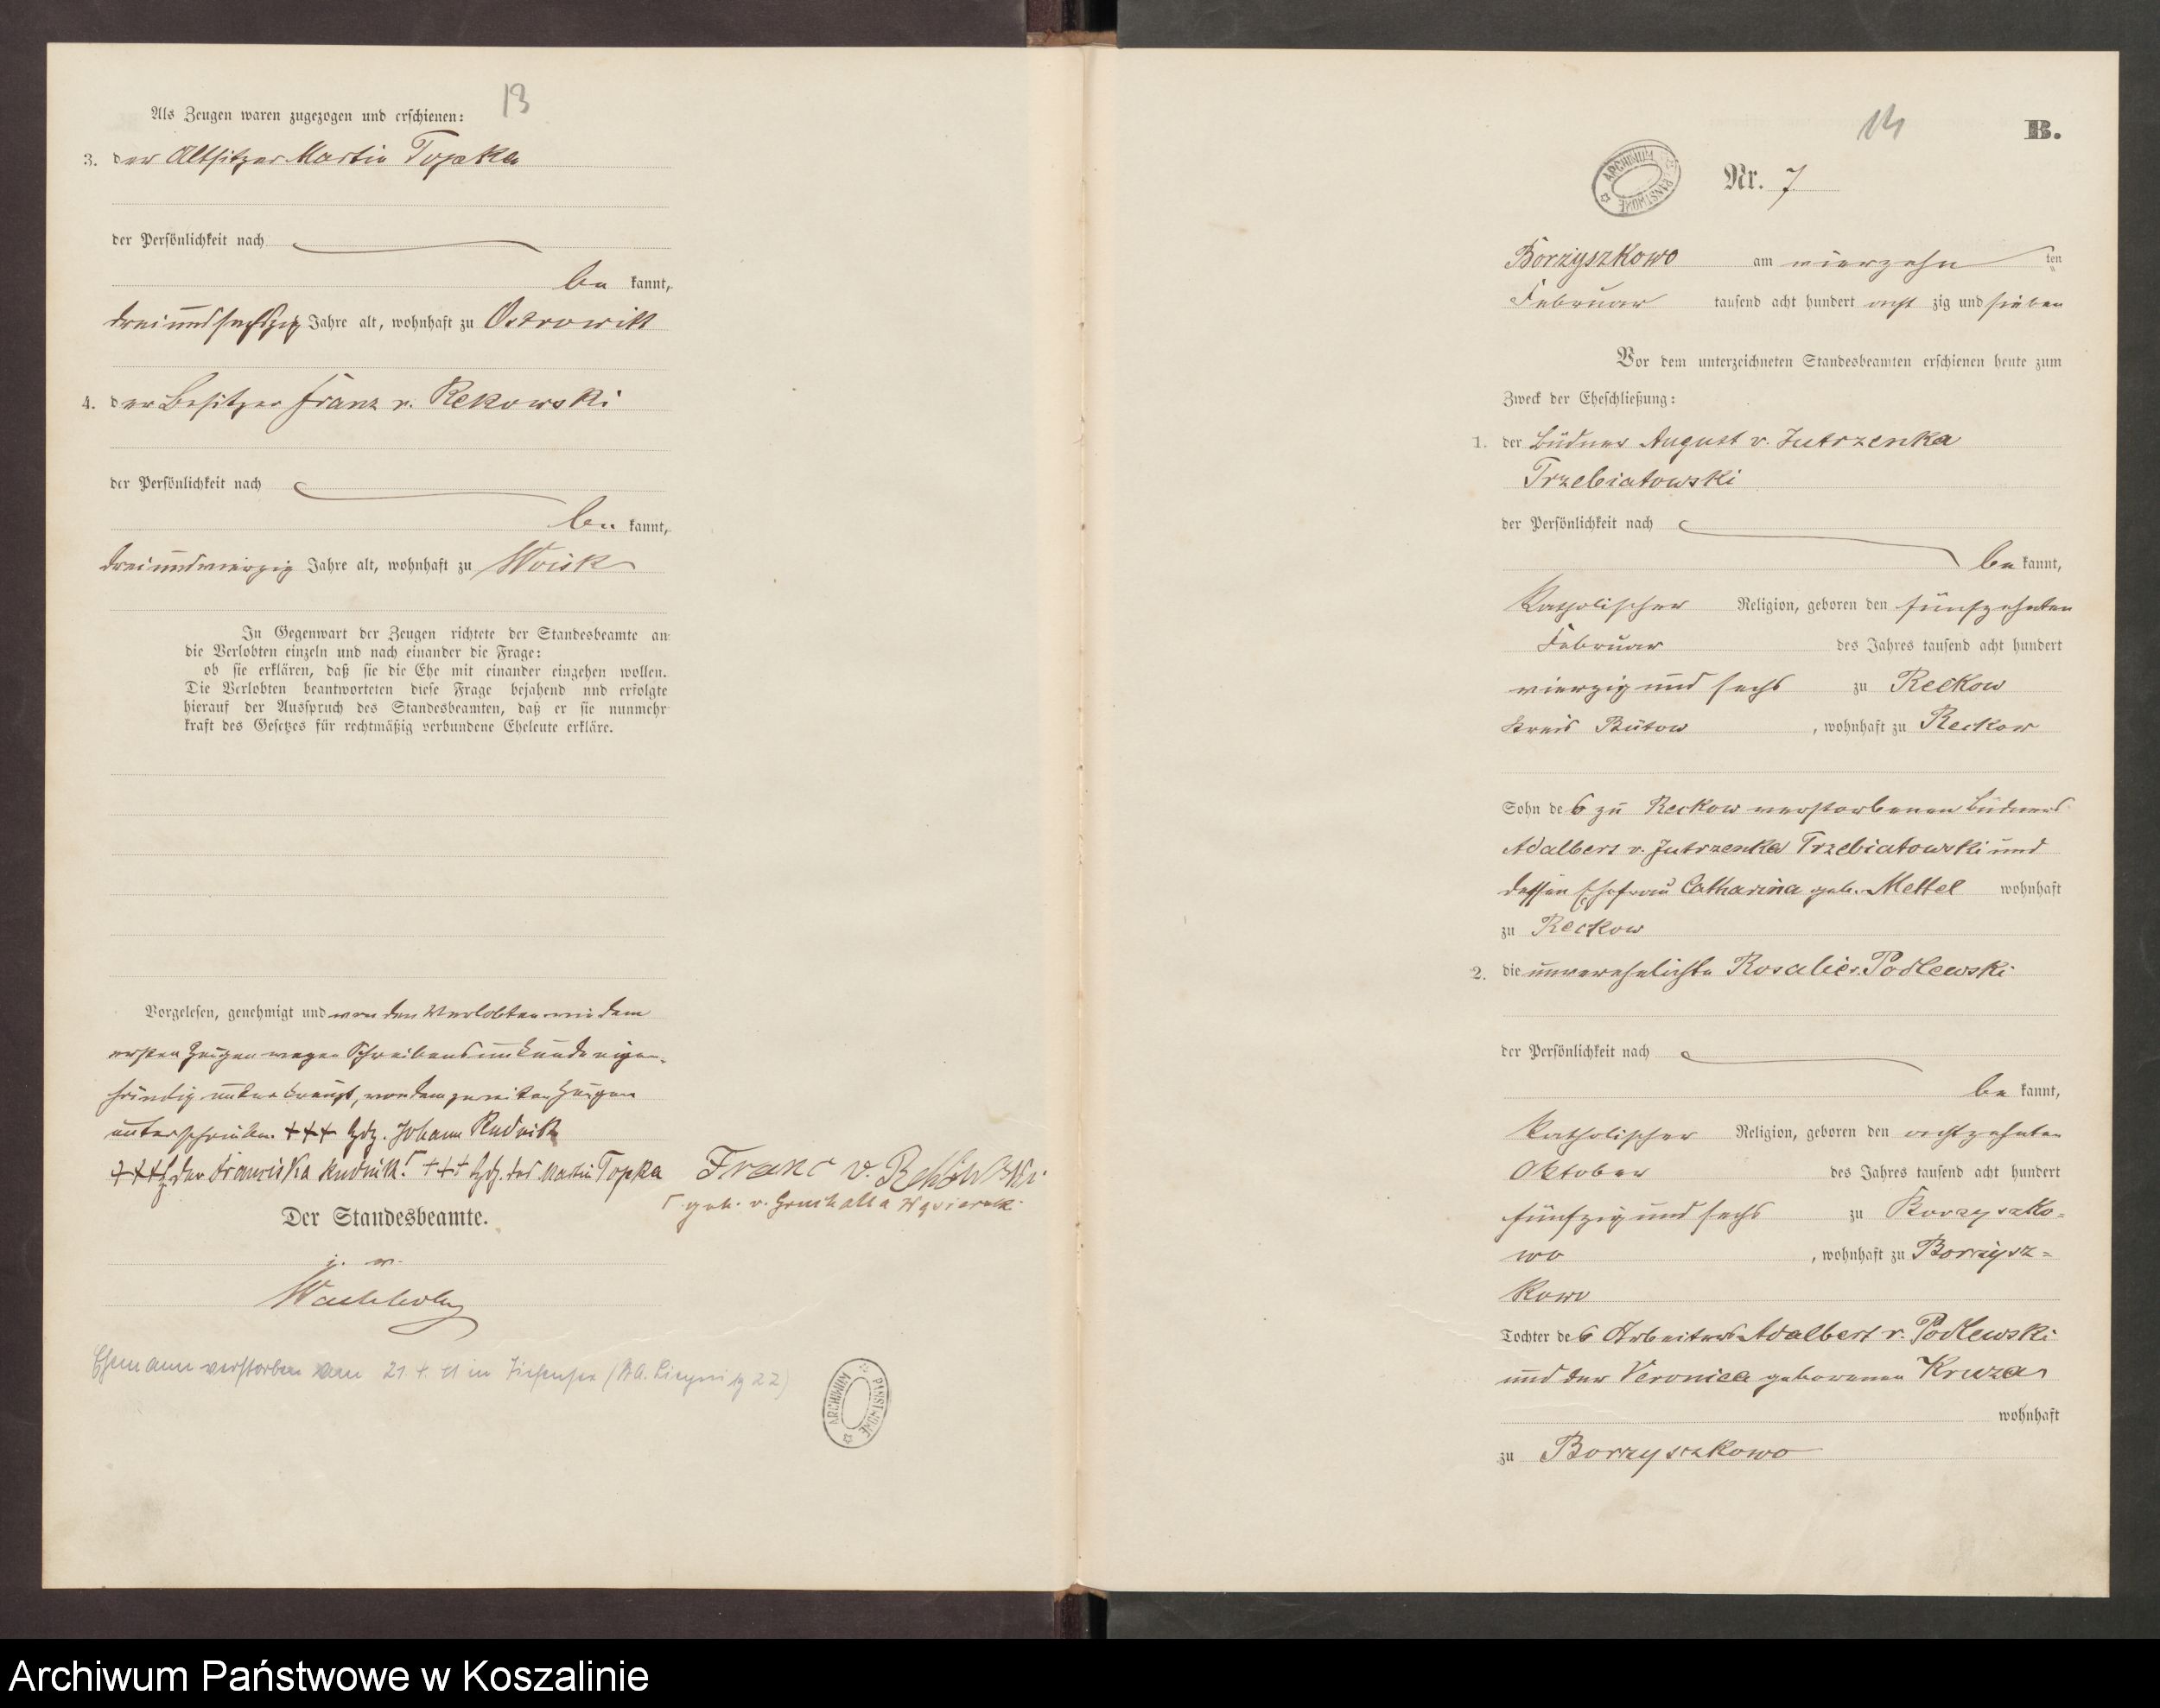 13
Als Zeugen waren zugezogen und erschienen:
3. der Altsitzer Martin Topka
der Persönlichkeit nach
be kannt,
dreiundsechszig Jahre alt, wohnhaft zu Ostrowitt
4. der Besitzer Franz v. Rekowski
der Persönlichkeit nach
be kannt,
dreiundvierzig Jahre alt, wohnhaft zu Woisk
In Gegenwart der Zeugen richtete der Standesbeamte an
die Verlobten einzeln und nach einander die Frage:
ob sie erklären, daß sie die Ehe mit einander eingehen wollen.
Die Verlobten beantworteten diese Frage bejahend und erfolgte
hierauf der Ausspruch des Standesbeamten, daß er sie nunmehr
kraft des Gesetzes für rechtmäßig verbundene Eheleute erkläre.
Vorgelesen, genehmigt und von den Verlobten wie dem
ersten Zeugen wegen Schreibensunkunde eigen-
händig unterkreuzt, von dem zweiten Zeugen
unterschrieben. +++ Hdz. Johann Rudnik
+++ der Franciska Rudnik +++ Hdz. des Martin Topka Franc v. Rekowski
geb. v. Gruchalla
Der Standesbeamte.
i. v.
Wachholz
Ehemann verstorben am in
ARCHIWUM PAŃSTWOWE
14
B.
ARCHIWUM PAŃSTWOWE
Nr. 7
Borzyszkowo am vierzehn ten
Februar tausend acht hundert acht zig und sieben
Vor dem unterzeichneten Standesbeamten erschienen heute zum
Zweck der Eheschließung:
1. der Büdner August v. Jutrzenka
Trzebiatowski
der Persönlichkeit nach
be kannt,
Katholischer Religion, geboren den fünfzehnten
Februar des Jahres tausend acht hundert
vierzig und sechs zu Reckow
Kreis Bütow, wohnhaft zu Reckow
Sohn des zu Reckow verstorbenen Büdners
Adalbert v. Jutrzenka Trzebiatowski und
dessen Ehefrau Catharina geb. Mettel wohnhaft
zu Reckow
2. die unverehelichte Rosalie v. Podlewski
der Persönlichkeit nach
be kannt,
Katholischer Religion, geboren den achtzehnten
Oktober des Jahres tausend acht hundert
fünfzig und sechs zu Borzyszko-
wo, wohnhaft zu Borzysz-
kowo
Tochter des Arbeiters Adalbert v. Podlewski
und der Veronica geborenen Kruza
wohnhaft
zu Borzyszkowo
Archiwum Państwowe w Koszalinie